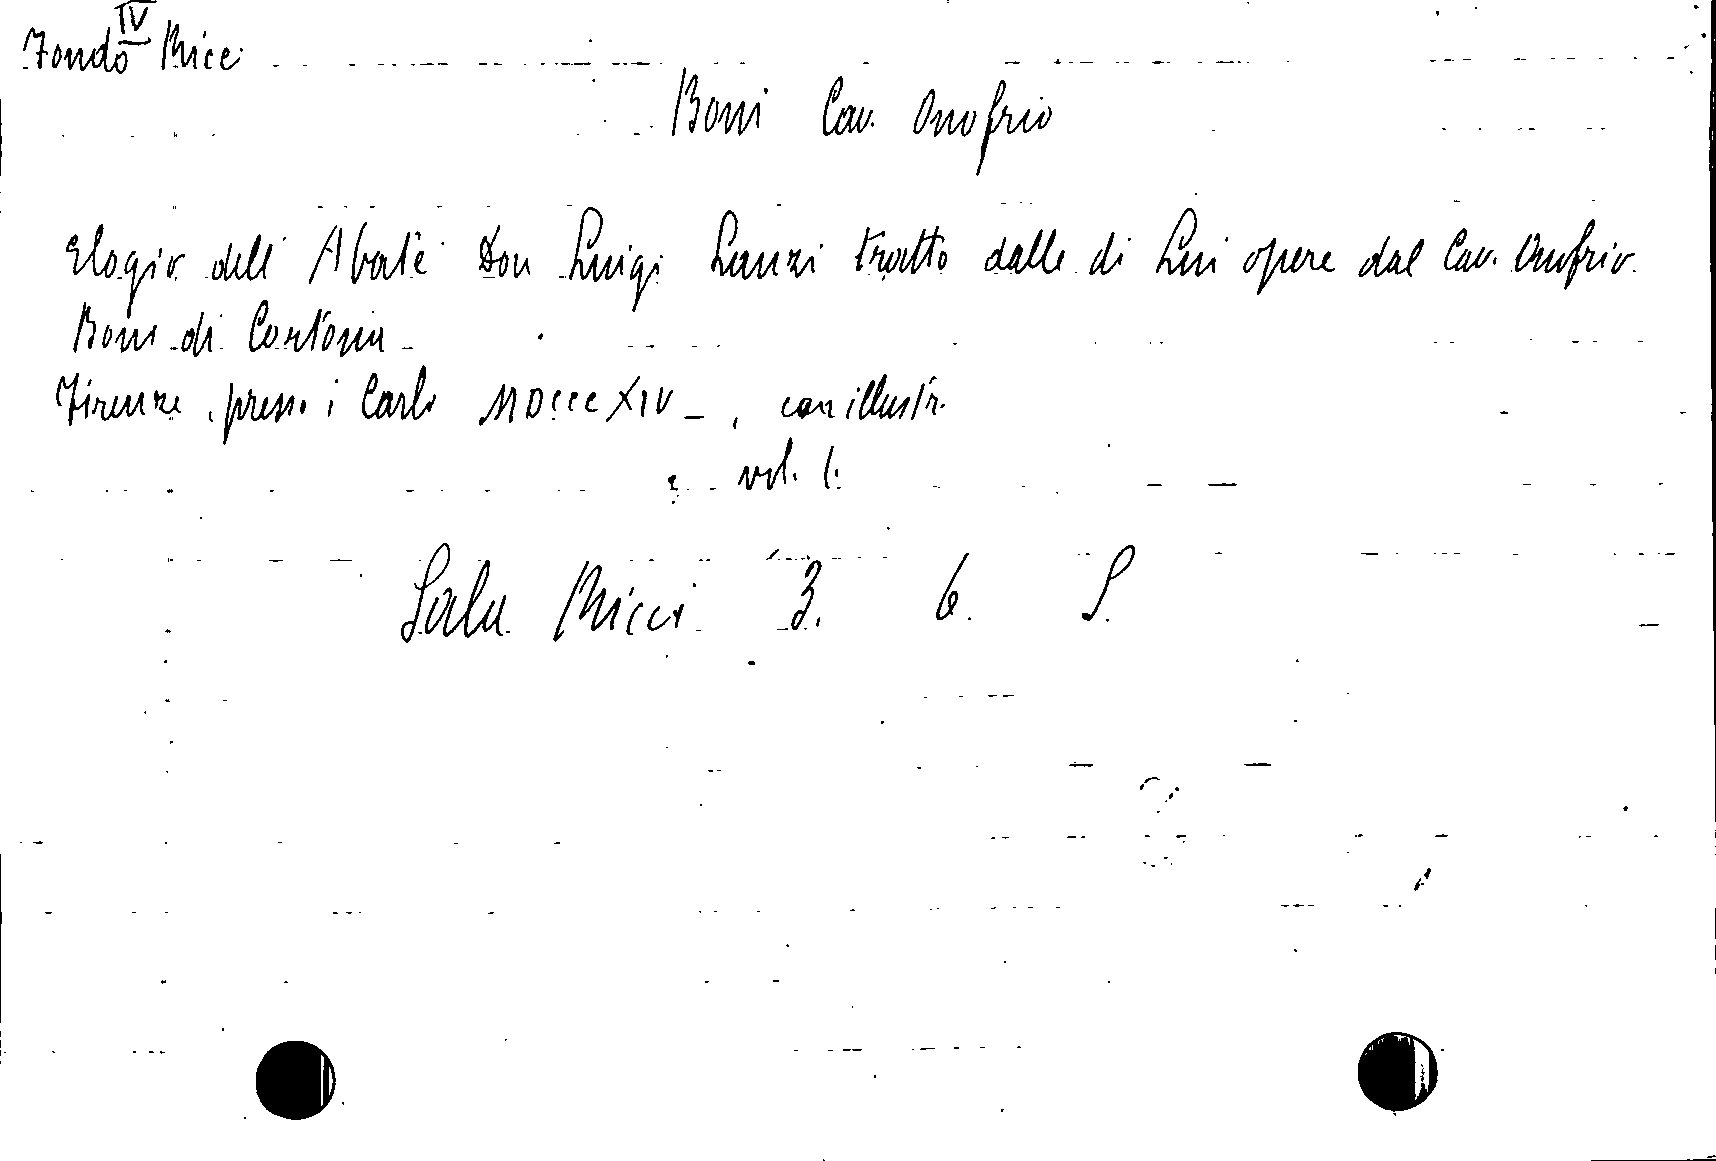 IV
Fondo Ricc.
Boni Cav. Onofrio
Elogio dell' Abate Don Luigi Lanzi tratto dalle di Lui opere dal Cav. Onofrio
Boni di Cortona
Firenze, presso i Carli MDCCCXIV _ , con illustr.
vol. 1.
Sala Ricci 3. 6. 5.